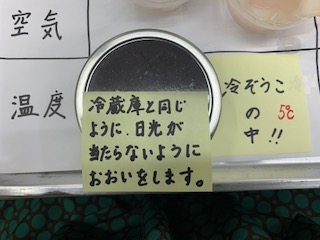 空気
温度
冷蔵庫と同じ
ように、日光が
当たらないように
おおいをします。
冷ぞうこ
の 5℃
中!!